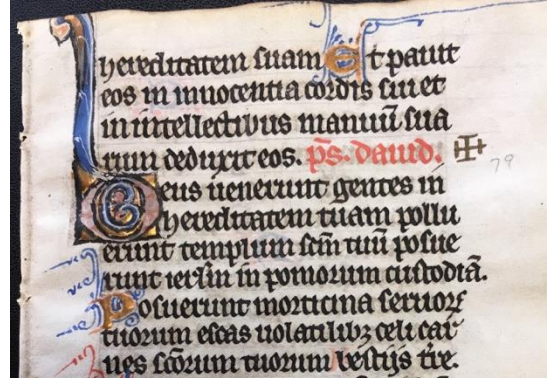 hereditatem suam Et pavit
eos in innocentia cordis sui et
in intellectibus manuū sua
rum deduxit eos. p̄s. dauid. 79
Deus uenerunt gentes in
hereditatem tuam pollu
erunt templum scm̄ tuū posue
runt ierl̄m in pomorum custodiā.
Posuerunt morticina seruorꝝ
tuorum escas uolatilibꝫ celi car
nes scōrum tuorum bestijs tr̄e.